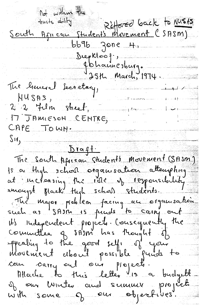 Not within the
trade ability
Referred back to NUSAS
South African Students Movement (SASM)
667b Zone 4,
Diepkloof,
Johannesburg.
25th March, 1974.
The General Secretary,
NUSAS,
2 2 Film Street,
17 JAMIESON CENTRE,
CAPE TOWN.
Sir,
Draft
The South African Students Movement (SASM)
is a High School organisation attempting
at increasing the role of responsibility
amongst Black high school students.
The major problem facing an organisation
such as SASM is funds to carry out
its independent projects. Consequently the
Committee of SASM has thought of
appealing to the good self of your
movement about possible funds to
carry out our project.
Attache to this letter is a budget
of our winter and summer project
with some of our objectives.